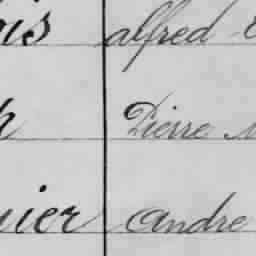 ois alfred
Pierre
nier andre